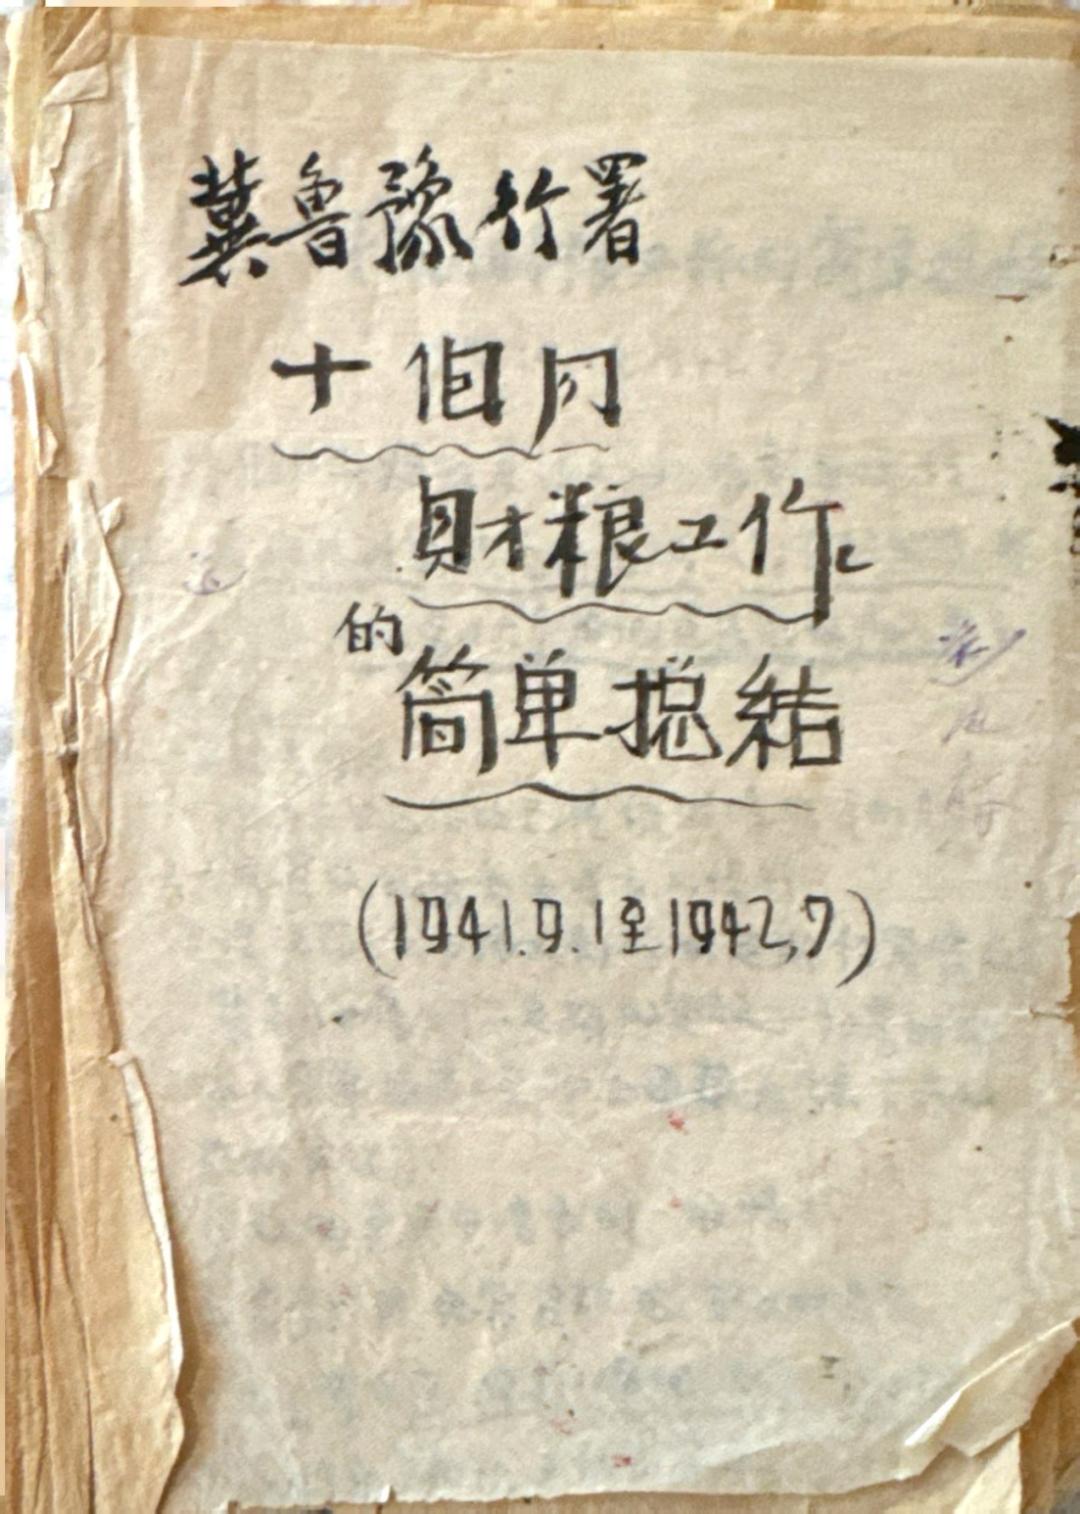 冀魯豫行署
十個月
財粮工作
的
简单摠結
(1941.9.1至1942.7)